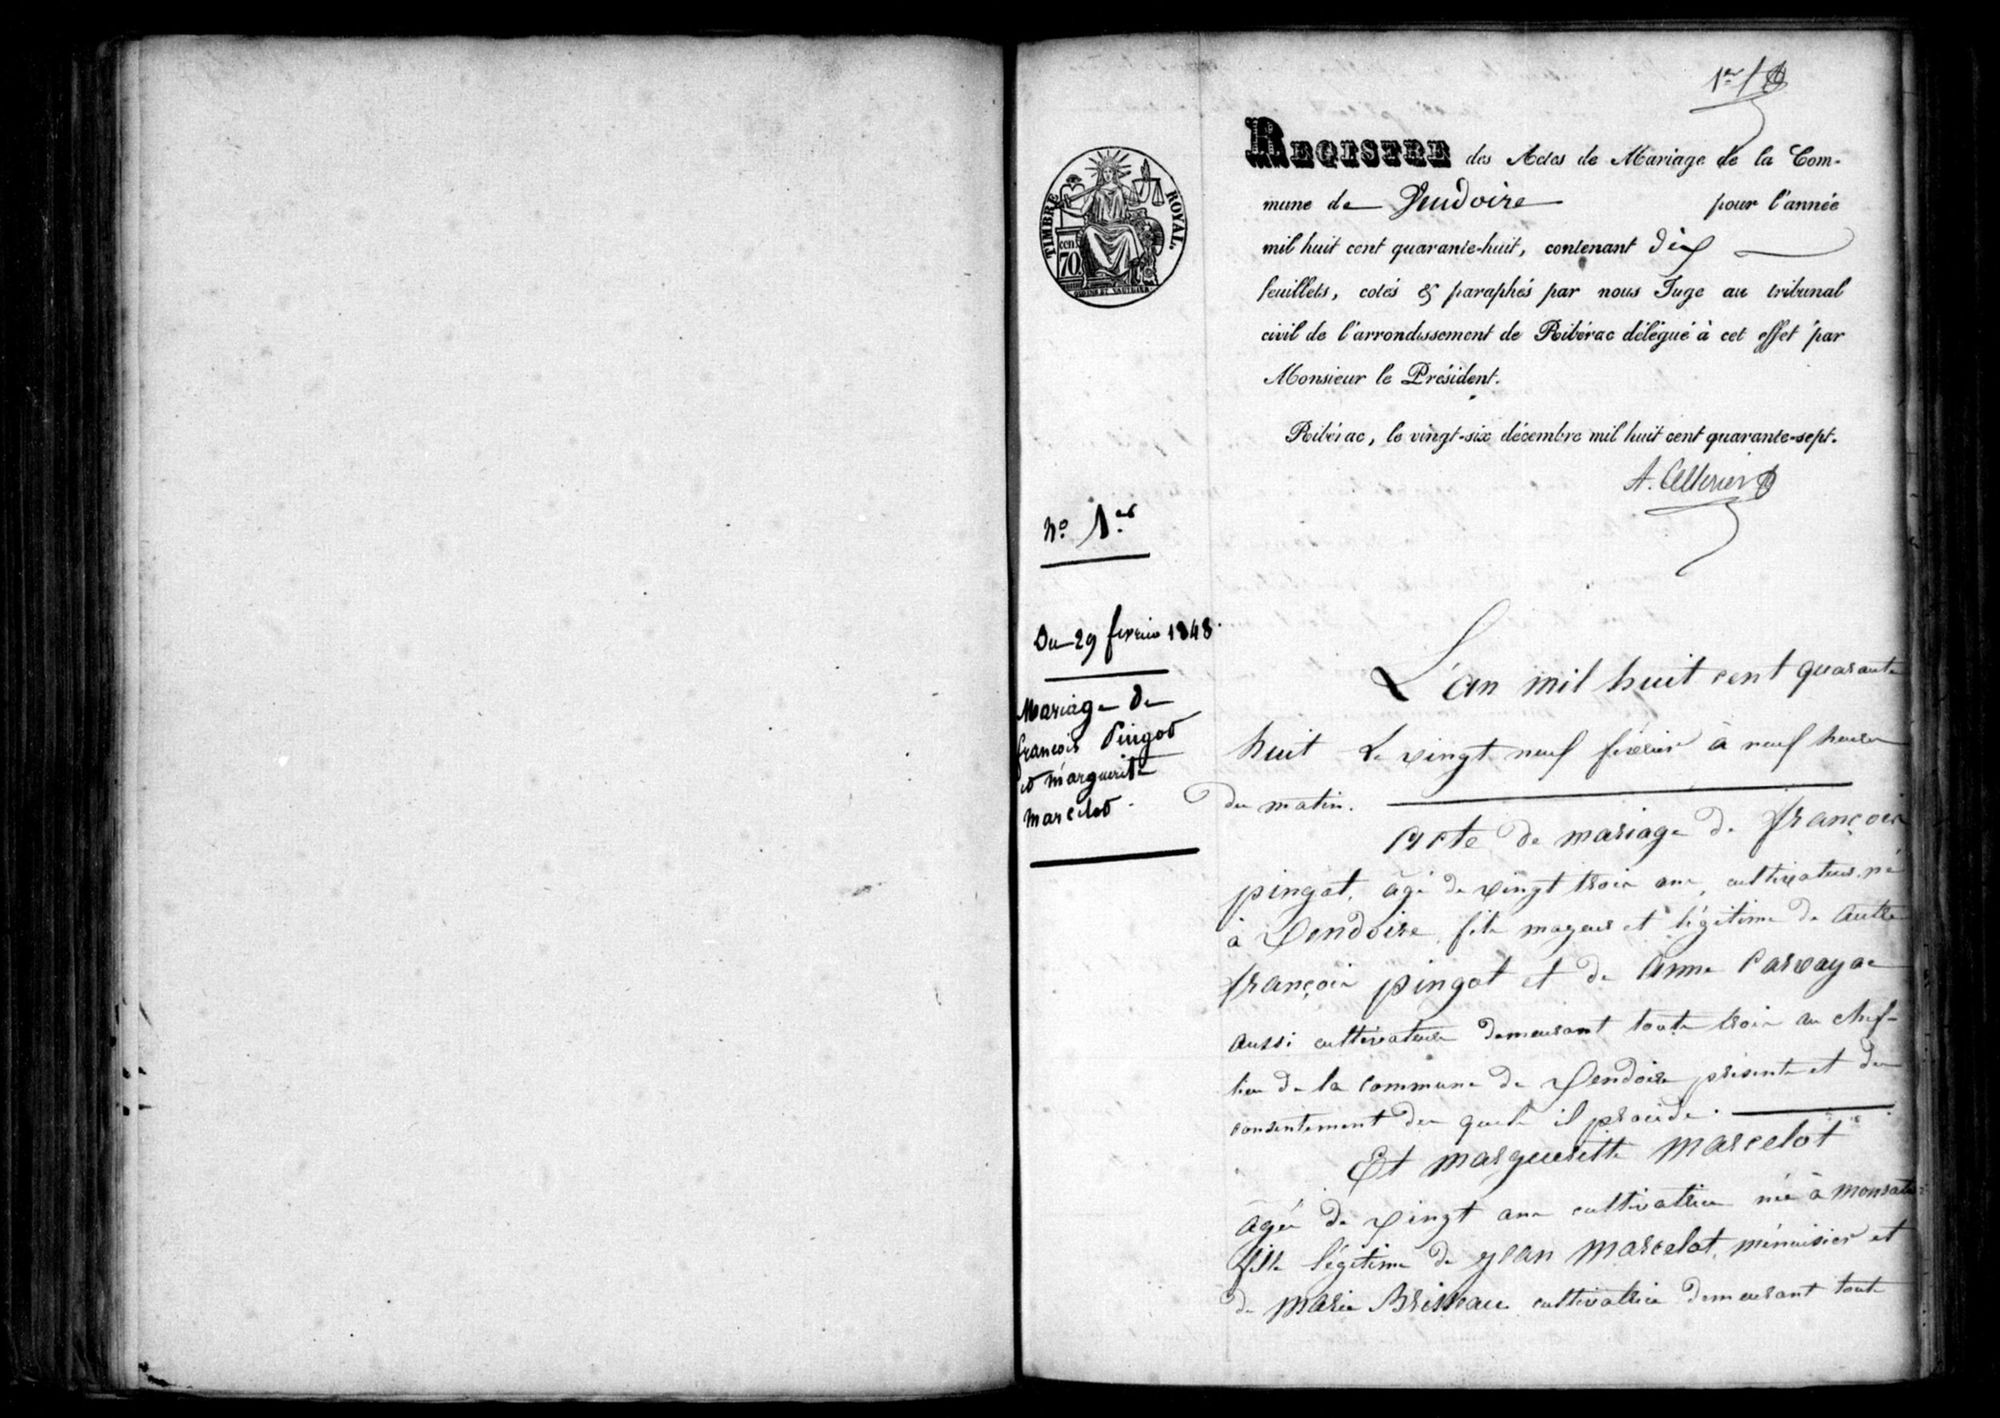 1er
REGISTRE des Actes de Mariage de la Com-
mune de Vendoire pour l'année
mil huit cent quarante-huit, contenant dix
feuillets, cotés & paraphés par nous Juge au tribunal
civil de l'arrondissement de Ribérac délégué à cet effet par
Monsieur le Président.
Ribérac, le vingt-six décembre mil huit cent quarante-sept.
TIMBRE ROYAL
cen
70
No 1er
Du 29 février 1848.
Mariage de
françois Pingot
et marguerite
marcelot.
L'an mil huit cent quarante
huit le vingt neuf février à neuf heures
du matin.
Acte de mariage de françois
pingat, âgé de vingt trois ans, cultivateur, né
à Vendoire, fils mageur et légitime de autre
françois pingat et de anne Parvaya
aussi cultivateurs demeurant toute trois au chef-
lieu de la commune de Vendoire présents et du
consentement des quels il procède.
Et margueritte marcelot
agée de vingt ans cultivatrice née à monsat
fille légitime de jean marcelot, ménuisier et
de marie Brisseau cultivatrice demeurant tout